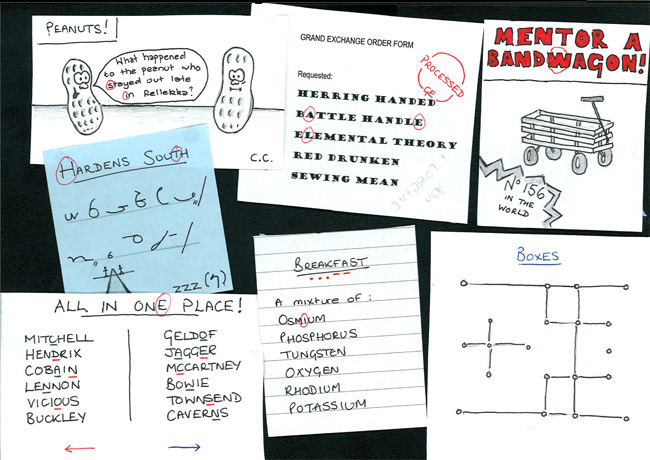 PEANUTS!
What happened
to the peanut who
stayed out late
in Rellekka?
C.C.
GRAND EXCHANGE ORDER FORM
PROCESSED
GE
Requested:
HERRING HANDED
BATTLE HANDLE
ELEMENTAL THEORY
RED DRUNKEN
SEWING MEAN
MENTOR A
BANDWAGON!
No 156
IN THE
WORLD
HARDENS SOUTH
zzz (7)
ALL IN ONE PLACE!
MITCHELL
HENDRIX
COBAIN
LENNON
VICIOUS
BUCKLEY
GELDOF
JAGGER
MCCARTNEY
BOWIE
TOWNSEND
CAVERNS
BREAKFAST
A mixture of :
OSMIUM
PHOSPHORUS
TUNGSTEN
OXYGEN
RHODIUM
POTASSIUM
BOXES